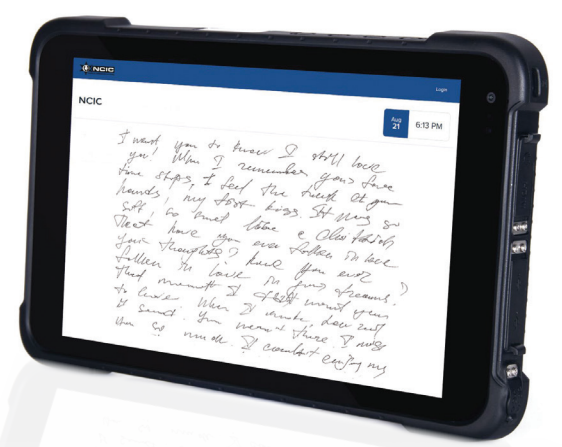 NCIC
Login
NCIC
Aug
21
6:13 PM
I want you to know I still love
you! When I remember your face
time stops, I feel the touch of your
hands, my first kiss. It was so
soft, so
that have you ever fallen in love
your thoughts? have you ever
fallen in love in your dreams?
that moment I want your
to leave. When I
I you weren't there I miss
you so much. I couldn't enjoy my